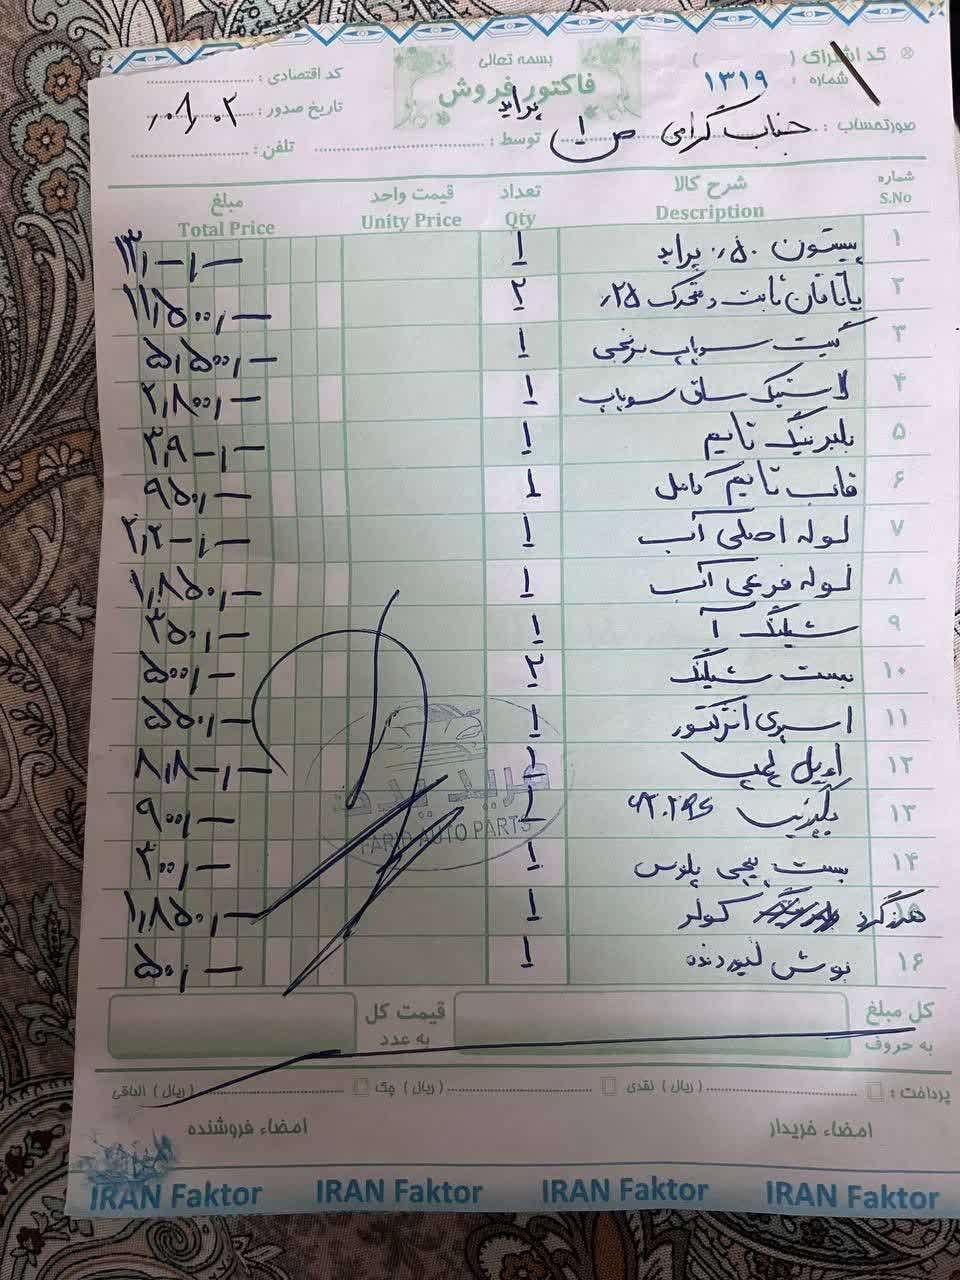 بسمه تعالی
فاکتور فروش
کد اشتراک ( )
شماره : ۱۳۱۹
کد اقتصادی :
تاریخ صدور :
صورتحساب : جناب گرامی ص ۱
پراید
توسط :
تلفن :
شماره S.No شرح کالا Description تعداد Qty قیمت واحد Unity Price مبلغ Total Price
۱ پیستون ۰٫۵۰ پراید ۱ ۱۳٫-٫-
۲ یاتاقان ثابت و متحرک ۰٫۲۵ ۲ ۱۱٫۵۰۰٫-
۳ گیت سوپاپ برنجی ۱ ۵٫۵۰۰٫-
۴ لاستیک ساق سوپاپ ۱ ۲٫۸۰۰٫-
۵ بلبرینگ تایم ۱ ۳٫۹-٫-
۶ قاب تایم کامل ۱ ۹۵۰٫-
۷ لوله اصلی آب ۱ ۲٫۲-٫-
۸ لوله فرعی آب ۱ ۱٫۸۵۰٫-
۹ شیلنگ آ ۱ ۳۵۰٫-
۱۰ بست شیلنگ ۲ ۵۰۰٫-
۱۱ اسپری انژکتور ۱ ۵۵۰٫-
۱۲ اویل پمپ ۱ ۸٫۸-٫-
۱۳ ۹۰۰٫-
۱۴ بست پیچی پلوس ۱ ۳۰۰٫-
۱۵ هرزگرد کولر ۱ ۱٫۸۵۰٫-
۱۶ بوش لیور دنده ۱ ۵۰٫-
فرید یدک
FARID AUTO PARTS
کل مبلغ به حروف
قیمت کل به عدد
پرداخت : (ریال) نقدی (ریال) چک (ریال) الباقی
امضاء خریدار
امضاء فروشنده
IRAN Faktor IRAN Faktor IRAN Faktor IRAN Faktor